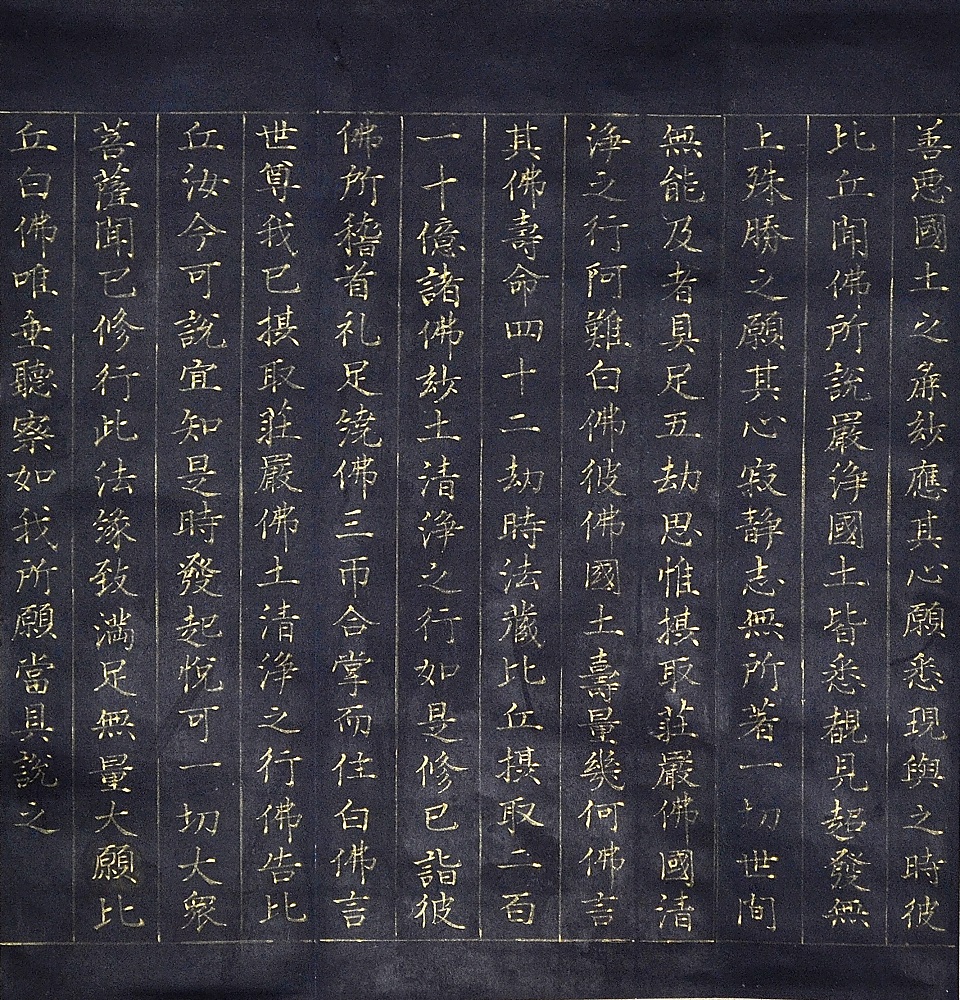 善惡國土之麁妙應其心願悉現與之時彼
比丘聞佛所說嚴淨國土皆悉覩見超發無
上殊勝之願其心寂静志無所著一切世間
無能及者具足五劫思惟摂取莊嚴佛國清
淨之行阿難白佛彼佛國土壽量幾何佛言
其佛壽命四十二劫時法蔵比丘摂取二百
一十億諸佛妙土清淨之行如是修已詣彼
佛所稽首礼足繞佛三帀合掌而住白佛言
世尊我已摂取莊嚴佛土清淨之行佛告比
丘汝今可說宜知是時發起悅可一切大衆
菩薩聞已修行此法縁致満足無量大願比
丘白佛唯垂聽察如我所願當具說之